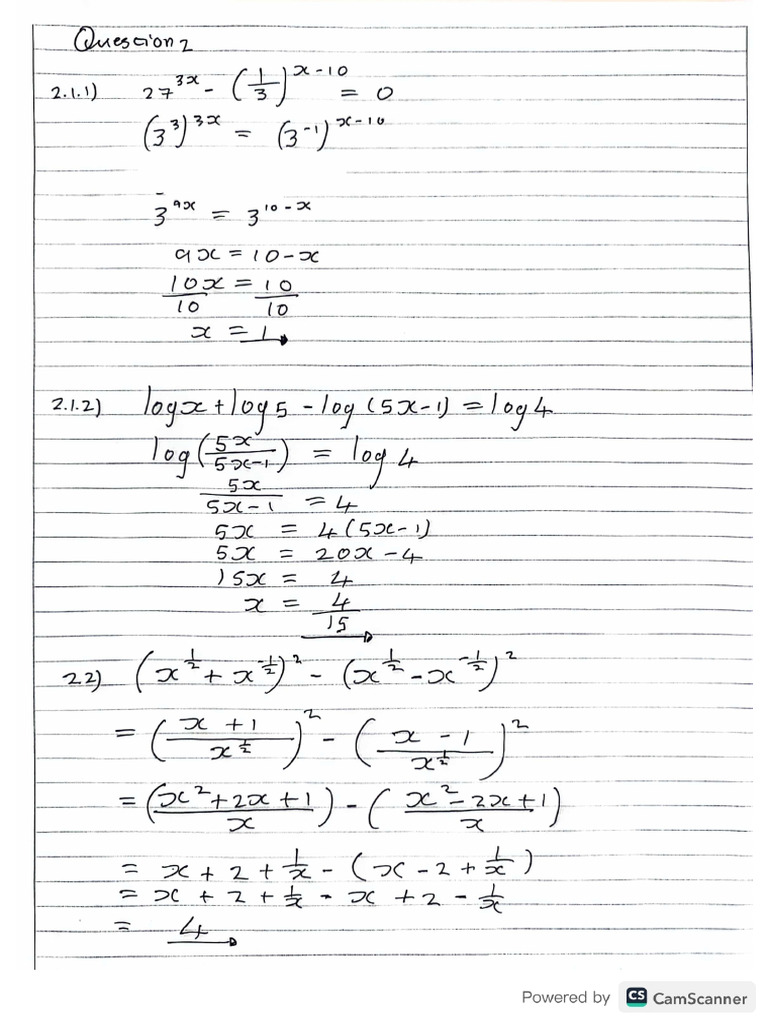 Question 2
2.1.1) 27^{3x} - (1/3)^{x-10} = 0
(3^3)^{3x} = (3^{-1})^{x-10}
3^{9x} = 3^{10-x}
9x = 10-x
10x/10 = 10/10
x = 1
2.1.2) log x + log 5 - log (5x-1) = log 4
log(5x/(5x-1)) = log 4
5x/(5x-1) = 4
5x = 4(5x-1)
5x = 20x-4
15x = 4
x = 4/15
2.2) (x^{1/2} + x^{-1/2})^2 - (x^{1/2} - x^{-1/2})^2
= ((x+1)/x^{1/2})^2 - ((x-1)/x^{1/2})^2
= ((x^2+2x+1)/x) - ((x^2-2x+1)/x)
= x + 2 + 1/x - (x - 2 + 1/x)
= x + 2 + 1/x - x + 2 - 1/x
= 4
Powered by CS CamScanner